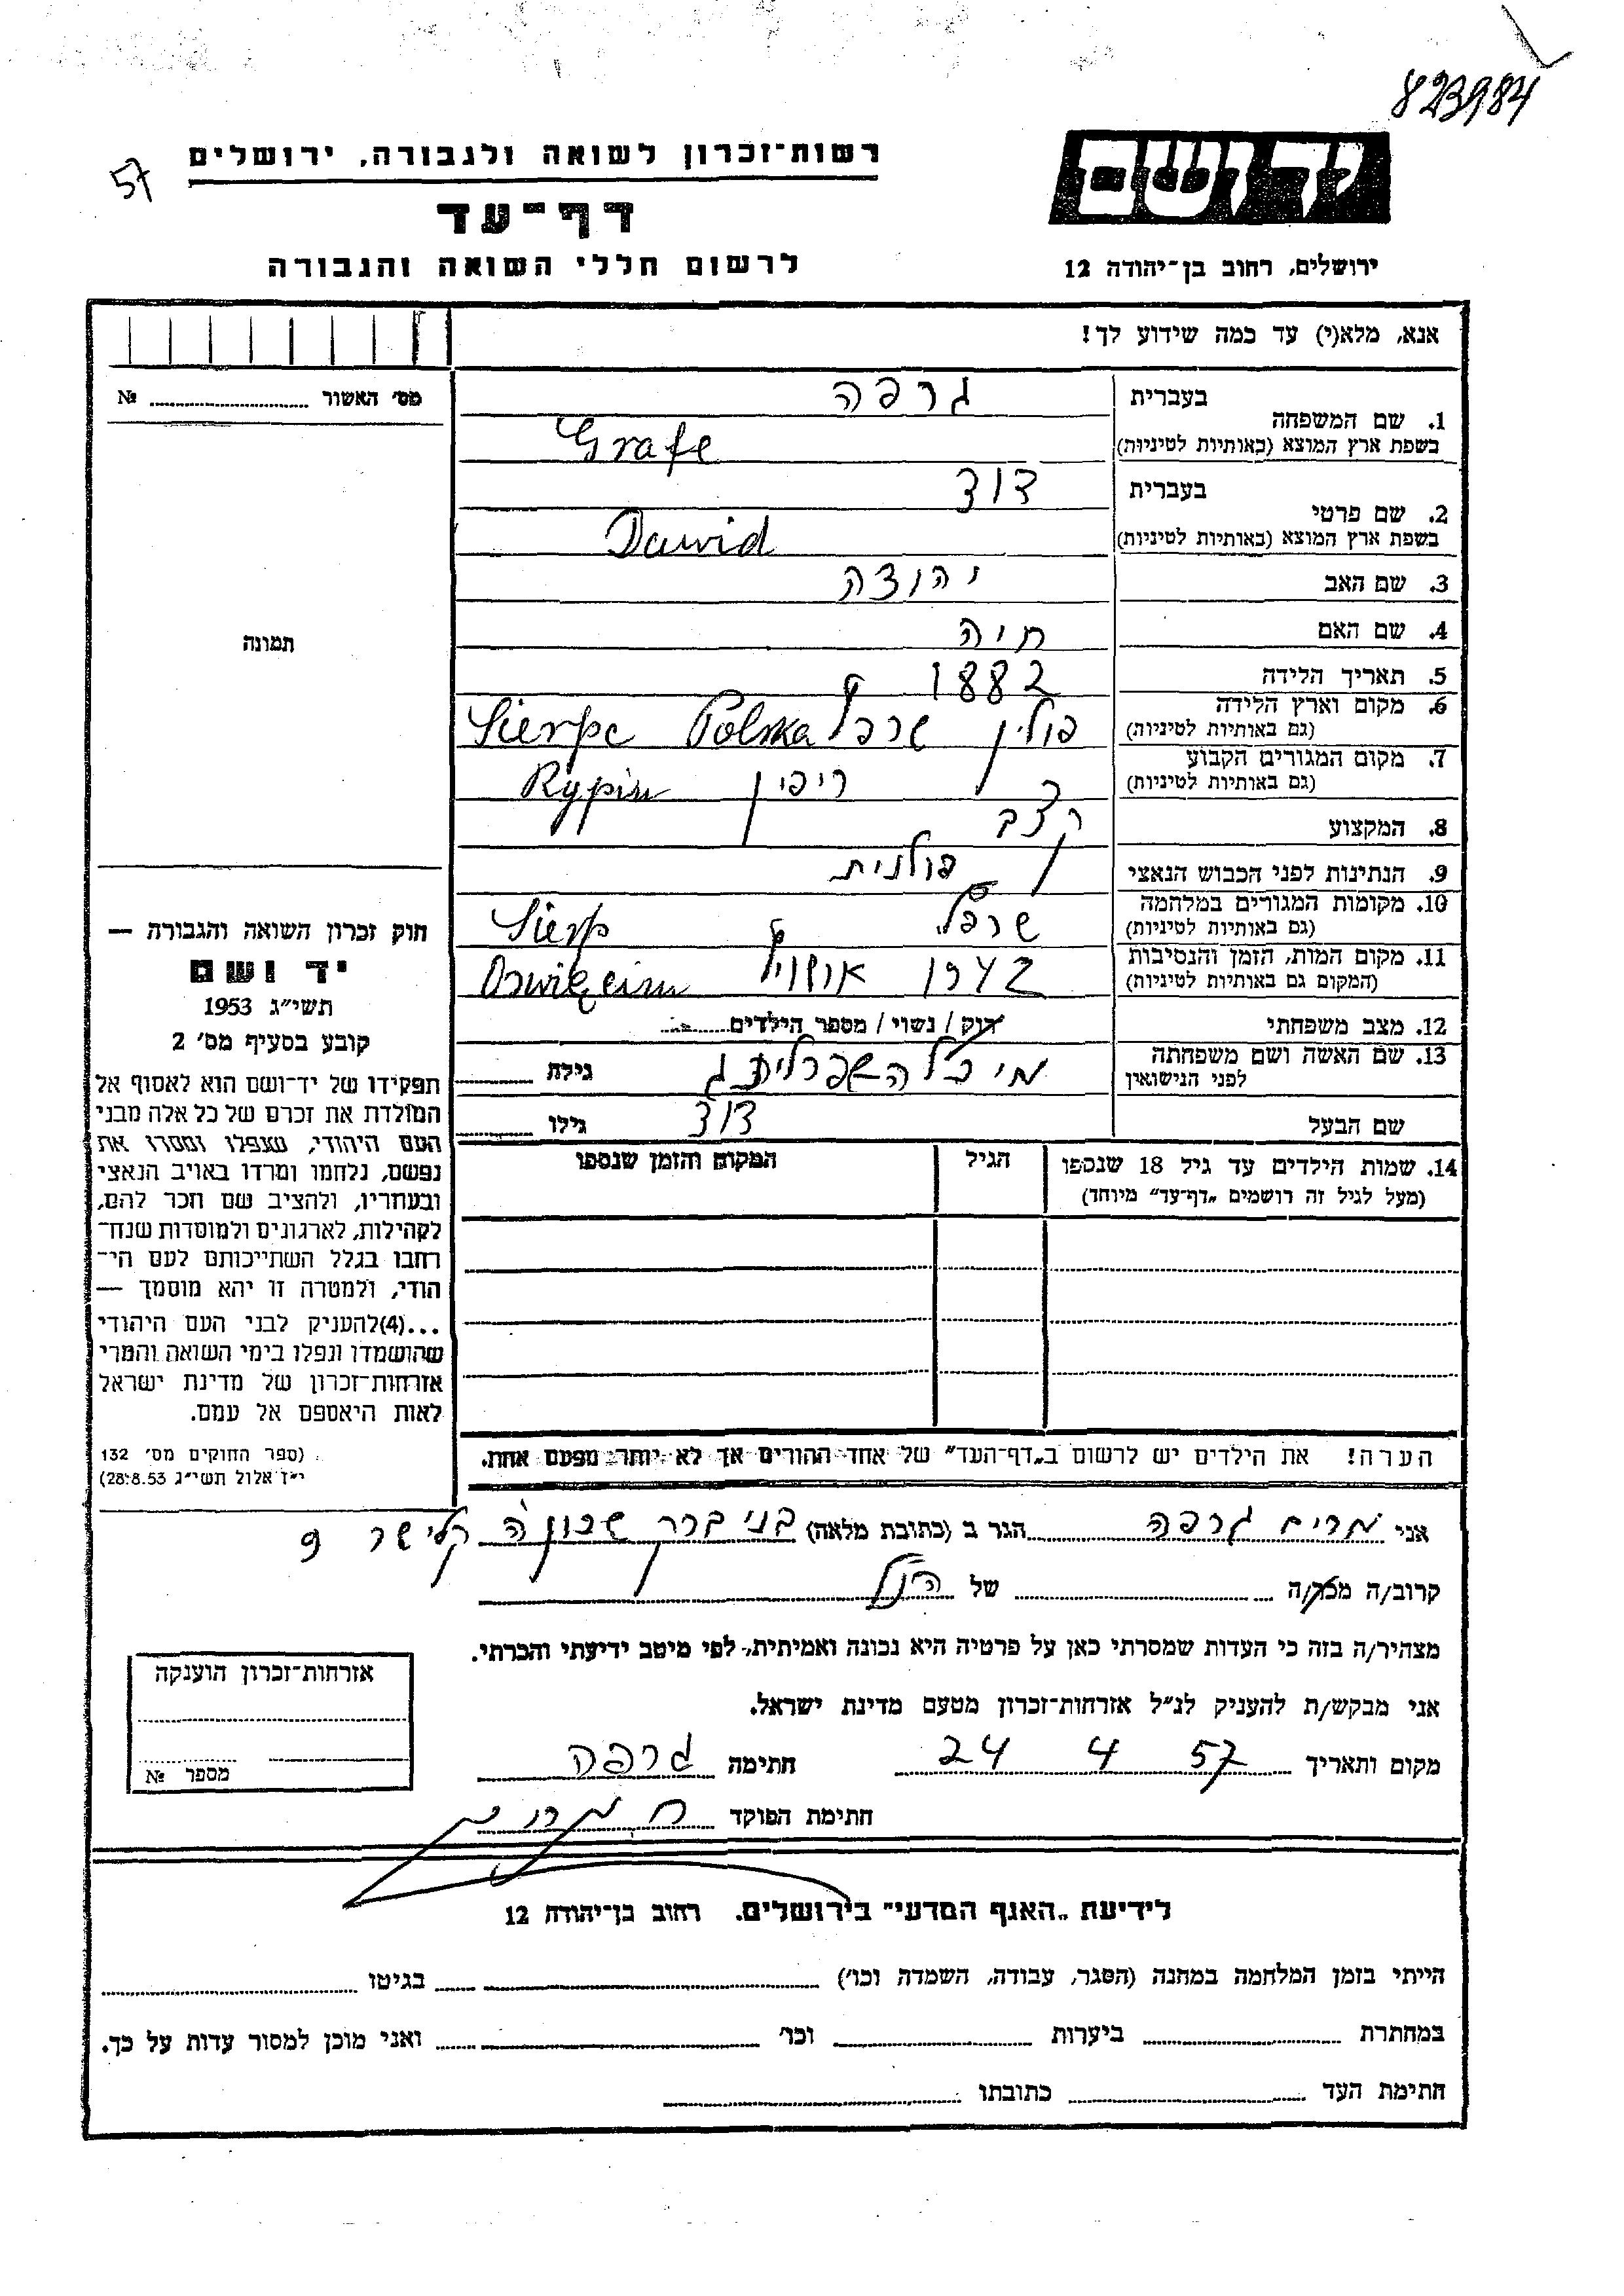 823984
57
רשות-זכרון לשואה ולגבורה, ירושלים
יד ושם
דף-עד
לרשום חללי השואה והגבורה
ירושלים, רחוב בן-יהודה 12
אנא, מלא(י) עד כמה שידוע לך!
מס' האשור № 
1. שם המשפחה
בעברית גרפה
בשפת ארץ המוצא (באותיות לטיניות) Grafe
2. שם פרטי
בעברית דוד
בשפת ארץ המוצא (באותיות לטיניות) Dawid
3. שם האב יהודה
4. שם האם חיה
5. תאריך הלידה 1882
6. מקום וארץ הלידה פולין שרפץ Polska Sierpc
(גם באותיות לטיניות)
7. מקום המגורים הקבוע ריפין Rypin
(גם באותיות לטיניות)
8. המקצוע קצב
9. הנתינות לפני הכבוש הנאצי פולנית
10. מקומות המגורים במלחמה שרפץ Sierp
(גם באותיות לטיניות)
11. מקום המות, הזמן והנסיבות 1942 Oswięcim
(המקום גם באותיות לטיניות)
12. מצב משפחתי רוק / נשוי / מספר הילדים
13. שם האשה ושם משפחתה גילה
לפני הנישואין
שם הבעל דוד גילו
14. שמות הילדים עד גיל 18 שנספו
(מעל לגיל זה רושמים „דף-עד" מיוחד)
הגיל
המקום והזמן שנספו
הערה! את הילדים יש לרשום ב„דף-העד" של אחד ההורים אך לא יותר מפעם אחת.
תמונה
חוק זכרון השואה והגבורה —
יד ושם
תשי״ג 1953
קובע בסעיף מס' 2
תפקידו של יד-ושם הוא לאסוף אל
המולדת את זכרם של כל אלה מבני
העם היהודי, שנפלו ומסרו את
נפשם, נלחמו ומרדו באויב הנאצי
ובעוזריו, ולהציב שם וזכר להם,
לקהילות, לארגונים ולמוסדות שנח-
רבו בגלל השתייכותם לעם הי-
הודי, ולמטרה זו יהא מוסמך —
...(4)להעניק לבני העם היהודי
שהושמדו ונפלו בימי השואה והמרי
אזרחות-זכרון של מדינת ישראל
לאות היאספם אל עמם.
(ספר החוקים מס' 132
י״ז אלול תשי״ג 28.8.53)
אני מרים גרפה הגר ב (כתובת מלאה) בני ברק קלישר 9
קרוב/ה מכר/ה של הנ״ל
מצהיר/ה בזה כי העדות שמסרתי כאן על פרטיה היא נכונה ואמיתית, לפי מיטב ידיעתי והכרתי.
אני מבקש/ת להעניק לנ״ל אזרחות-זכרון מטעם מדינת ישראל.
מקום ותאריך 24 4 57 חתימה גרפה
חתימת הפוקד
אזרחות-זכרון הוענקה
מספר №
לידיעת „האגף המדעי" בירושלים. רחוב בן-יהודה 12
הייתי בזמן המלחמה במחנה (הסגר, עבודה, השמדה וכו') בגיטו
במחתרת ביערות וכו' ואני מוכן למסור עדות על כך.
חתימת העד כתובתו